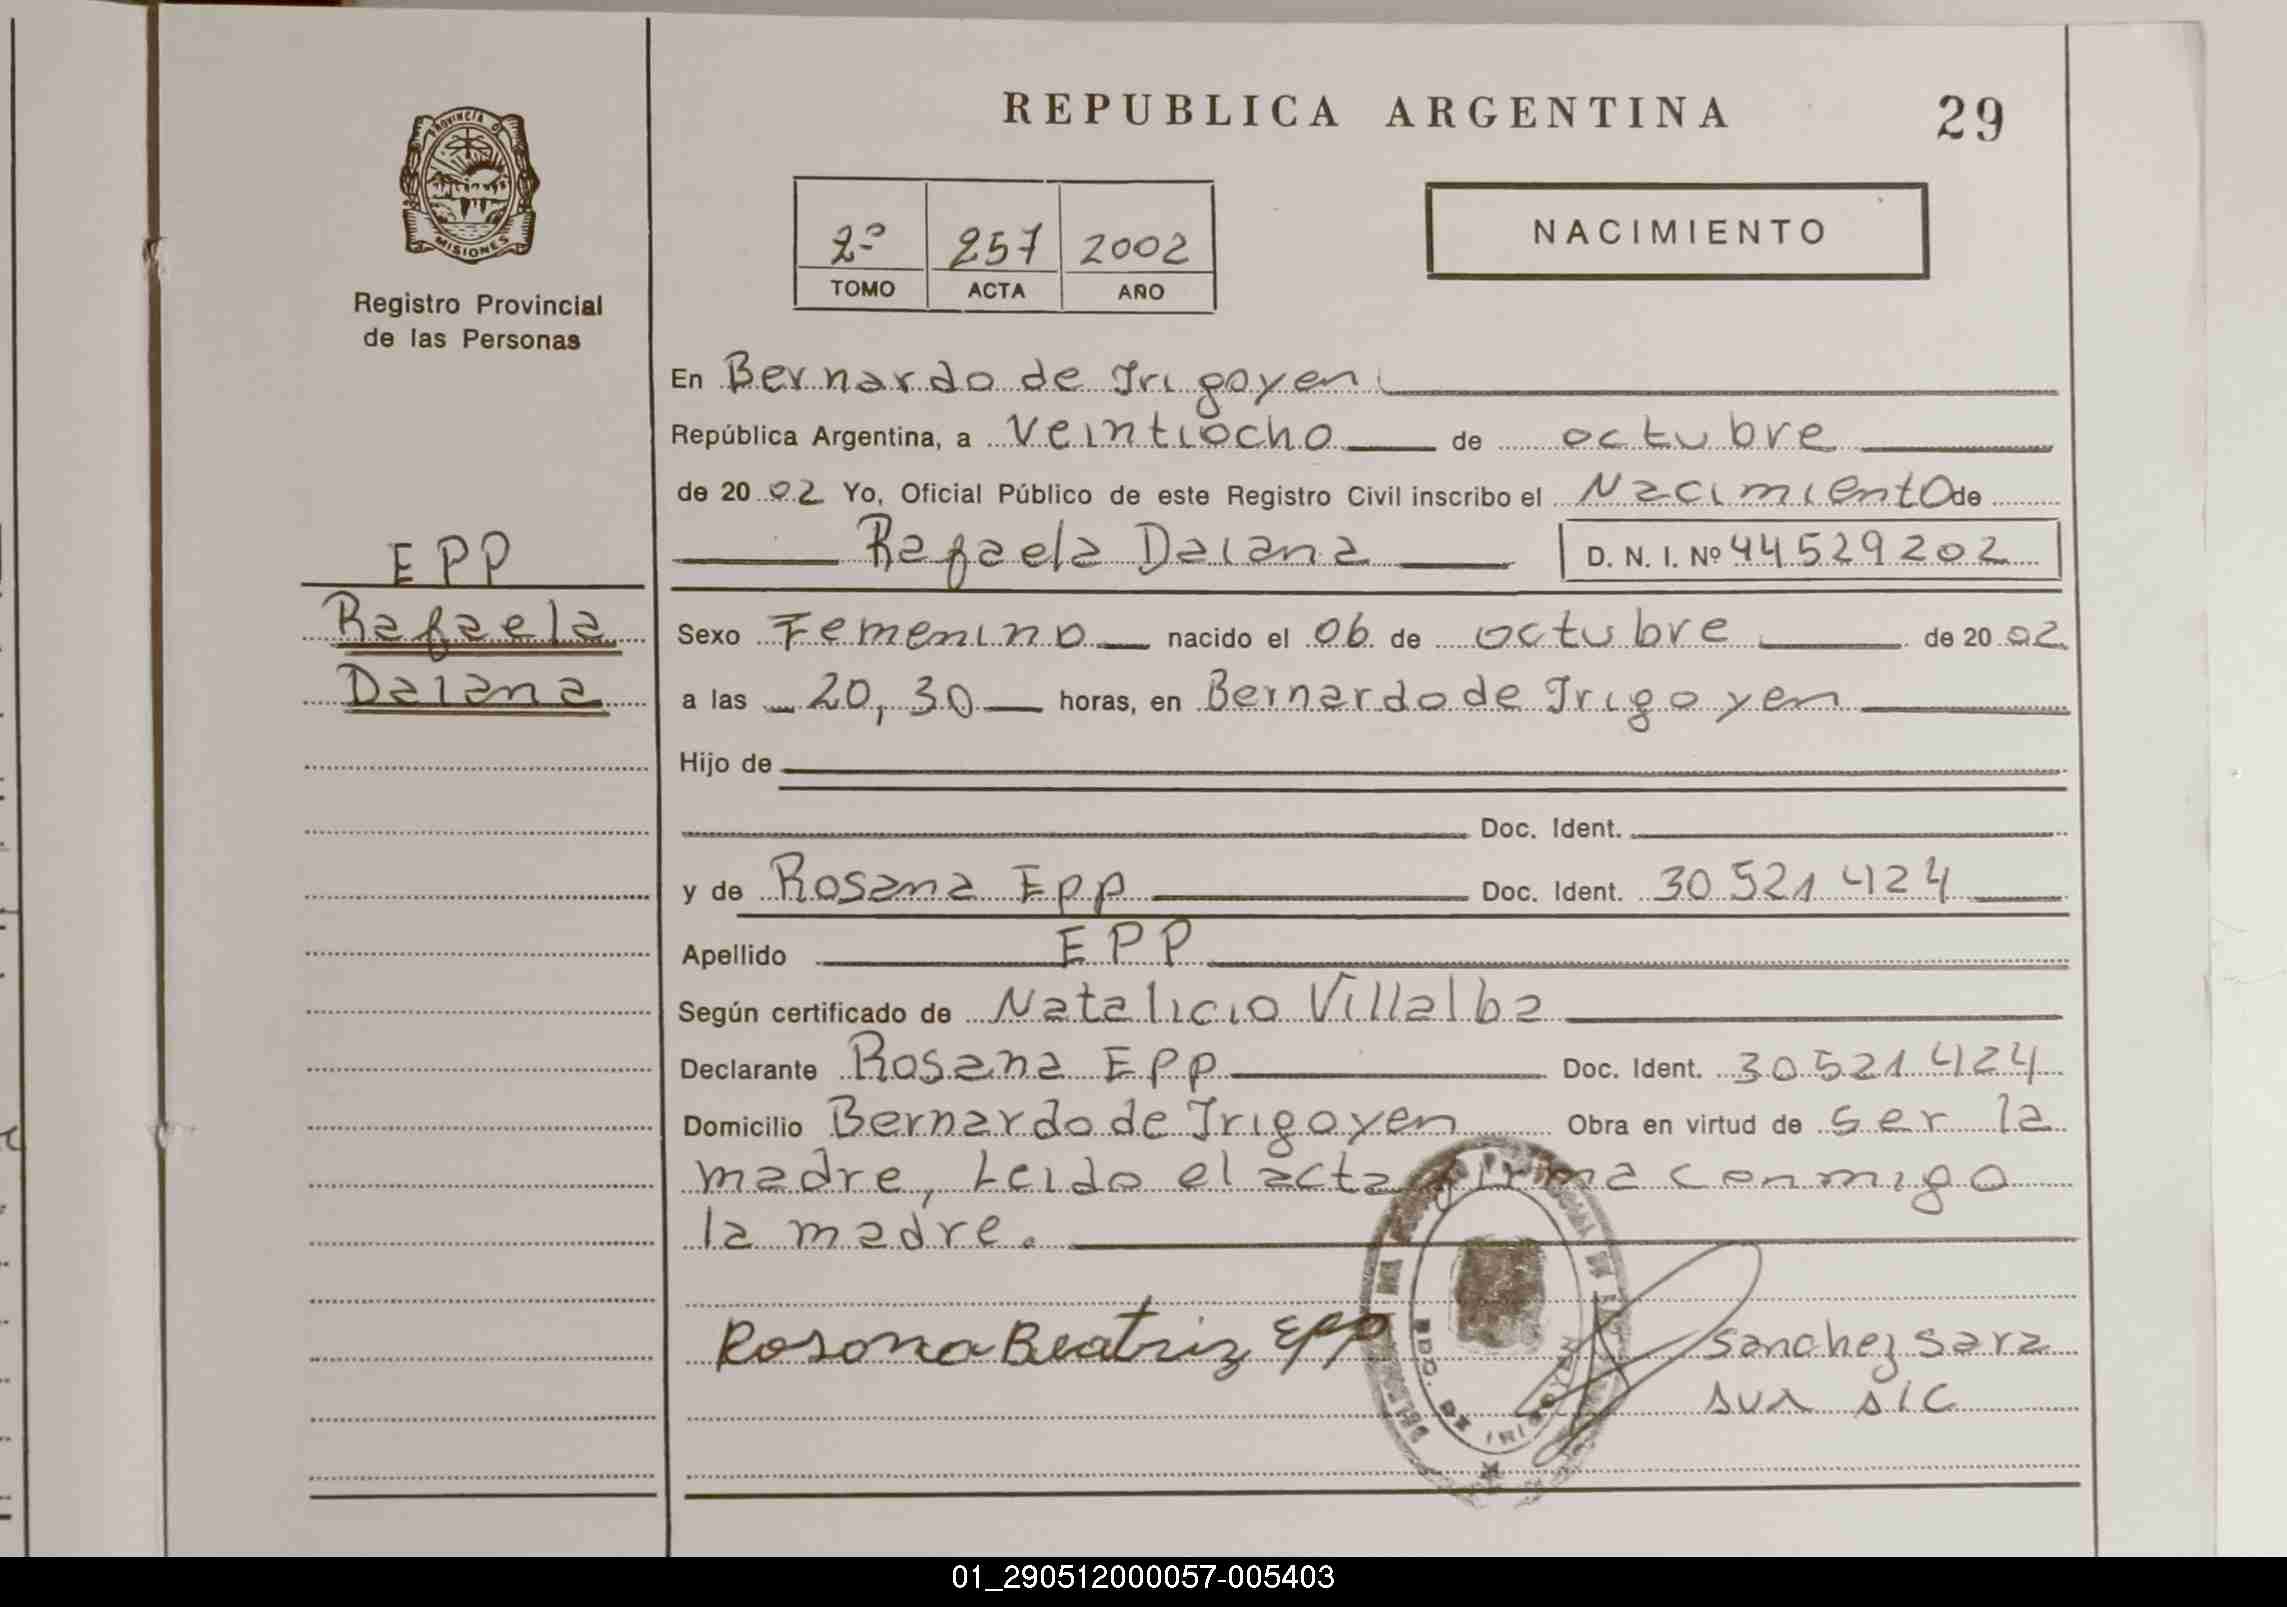 REPUBLICA ARGENTINA
29
PROVINCIA D
MISIONES
Registro Provincial
de las Personas
2º 257 2002
TOMO ACTA AÑO
NACIMIENTO
En Bernardo de Irigoyen
República Argentina, a veintiocho de octubre
de 2002 Yo, Oficial Público de este Registro Civil inscribo el Nacimiento de
Rafaela Daiana D. N. I. Nº 44529202
EPP
Rafaela
Daiana
Sexo Femenino nacido el 06 de octubre de 2002
a las 20,30 horas, en Bernardo de Irigoyen
Hijo de
Doc. Ident.
y de Rosana Epp Doc. Ident. 30521424
Apellido EPP
Según certificado de Natalicio Villalba
Declarante Rosana Epp Doc. Ident. 30521424
Domicilio Bernardo de Irigoyen Obra en virtud de ser la
madre, Leido el acta firma conmigo
la madre.
Rosana Beatriz Epp
Sanchez Sara
01_290512000057-005403